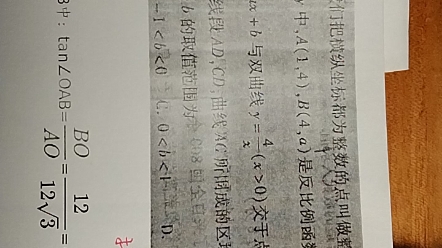 们把横纵坐标都为整数的点叫做整
中, A(1,4), B(4,a) 是反比例函数
ax + b 与双曲线 y = \frac{4}{x} (x>0) 交于点
线段 AD, CD, 曲线 AC 所围成的区域
b 的取值范围为
-1 < b < 0 C. 0 < b < 1 D.
中: tan∠OAB = \frac{BO}{AO} = \frac{12}{12\sqrt{3}} =